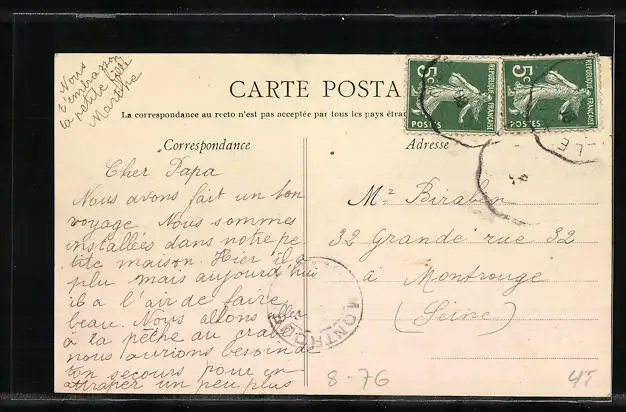 Nous
t'embrassons
ta petite fille
Marthe
CARTE POSTA
La correspondance au recto n'est pas acceptée par tous les pays étran
Correspondance
Cher Papa
Nous avons fait un bon
voyage. Nous sommes
installées dans notre pe
tite maison. Hier il a
plu mais aujourd'hui
il a l'air de faire
beau. Nous allons aller
à la pêche au crabe
nous aurions besoin de
ton secours pour en
attraper un peu plus
5c
REPUBLIQUE FRANÇAISE
POSTES
5c
REPUBLIQUE FRANÇAISE
POSTES
LE
Adresse
Mr Biraben
32 Grande rue 32
à Montrouge
(Seine)
MONTROUGE
8-76
45